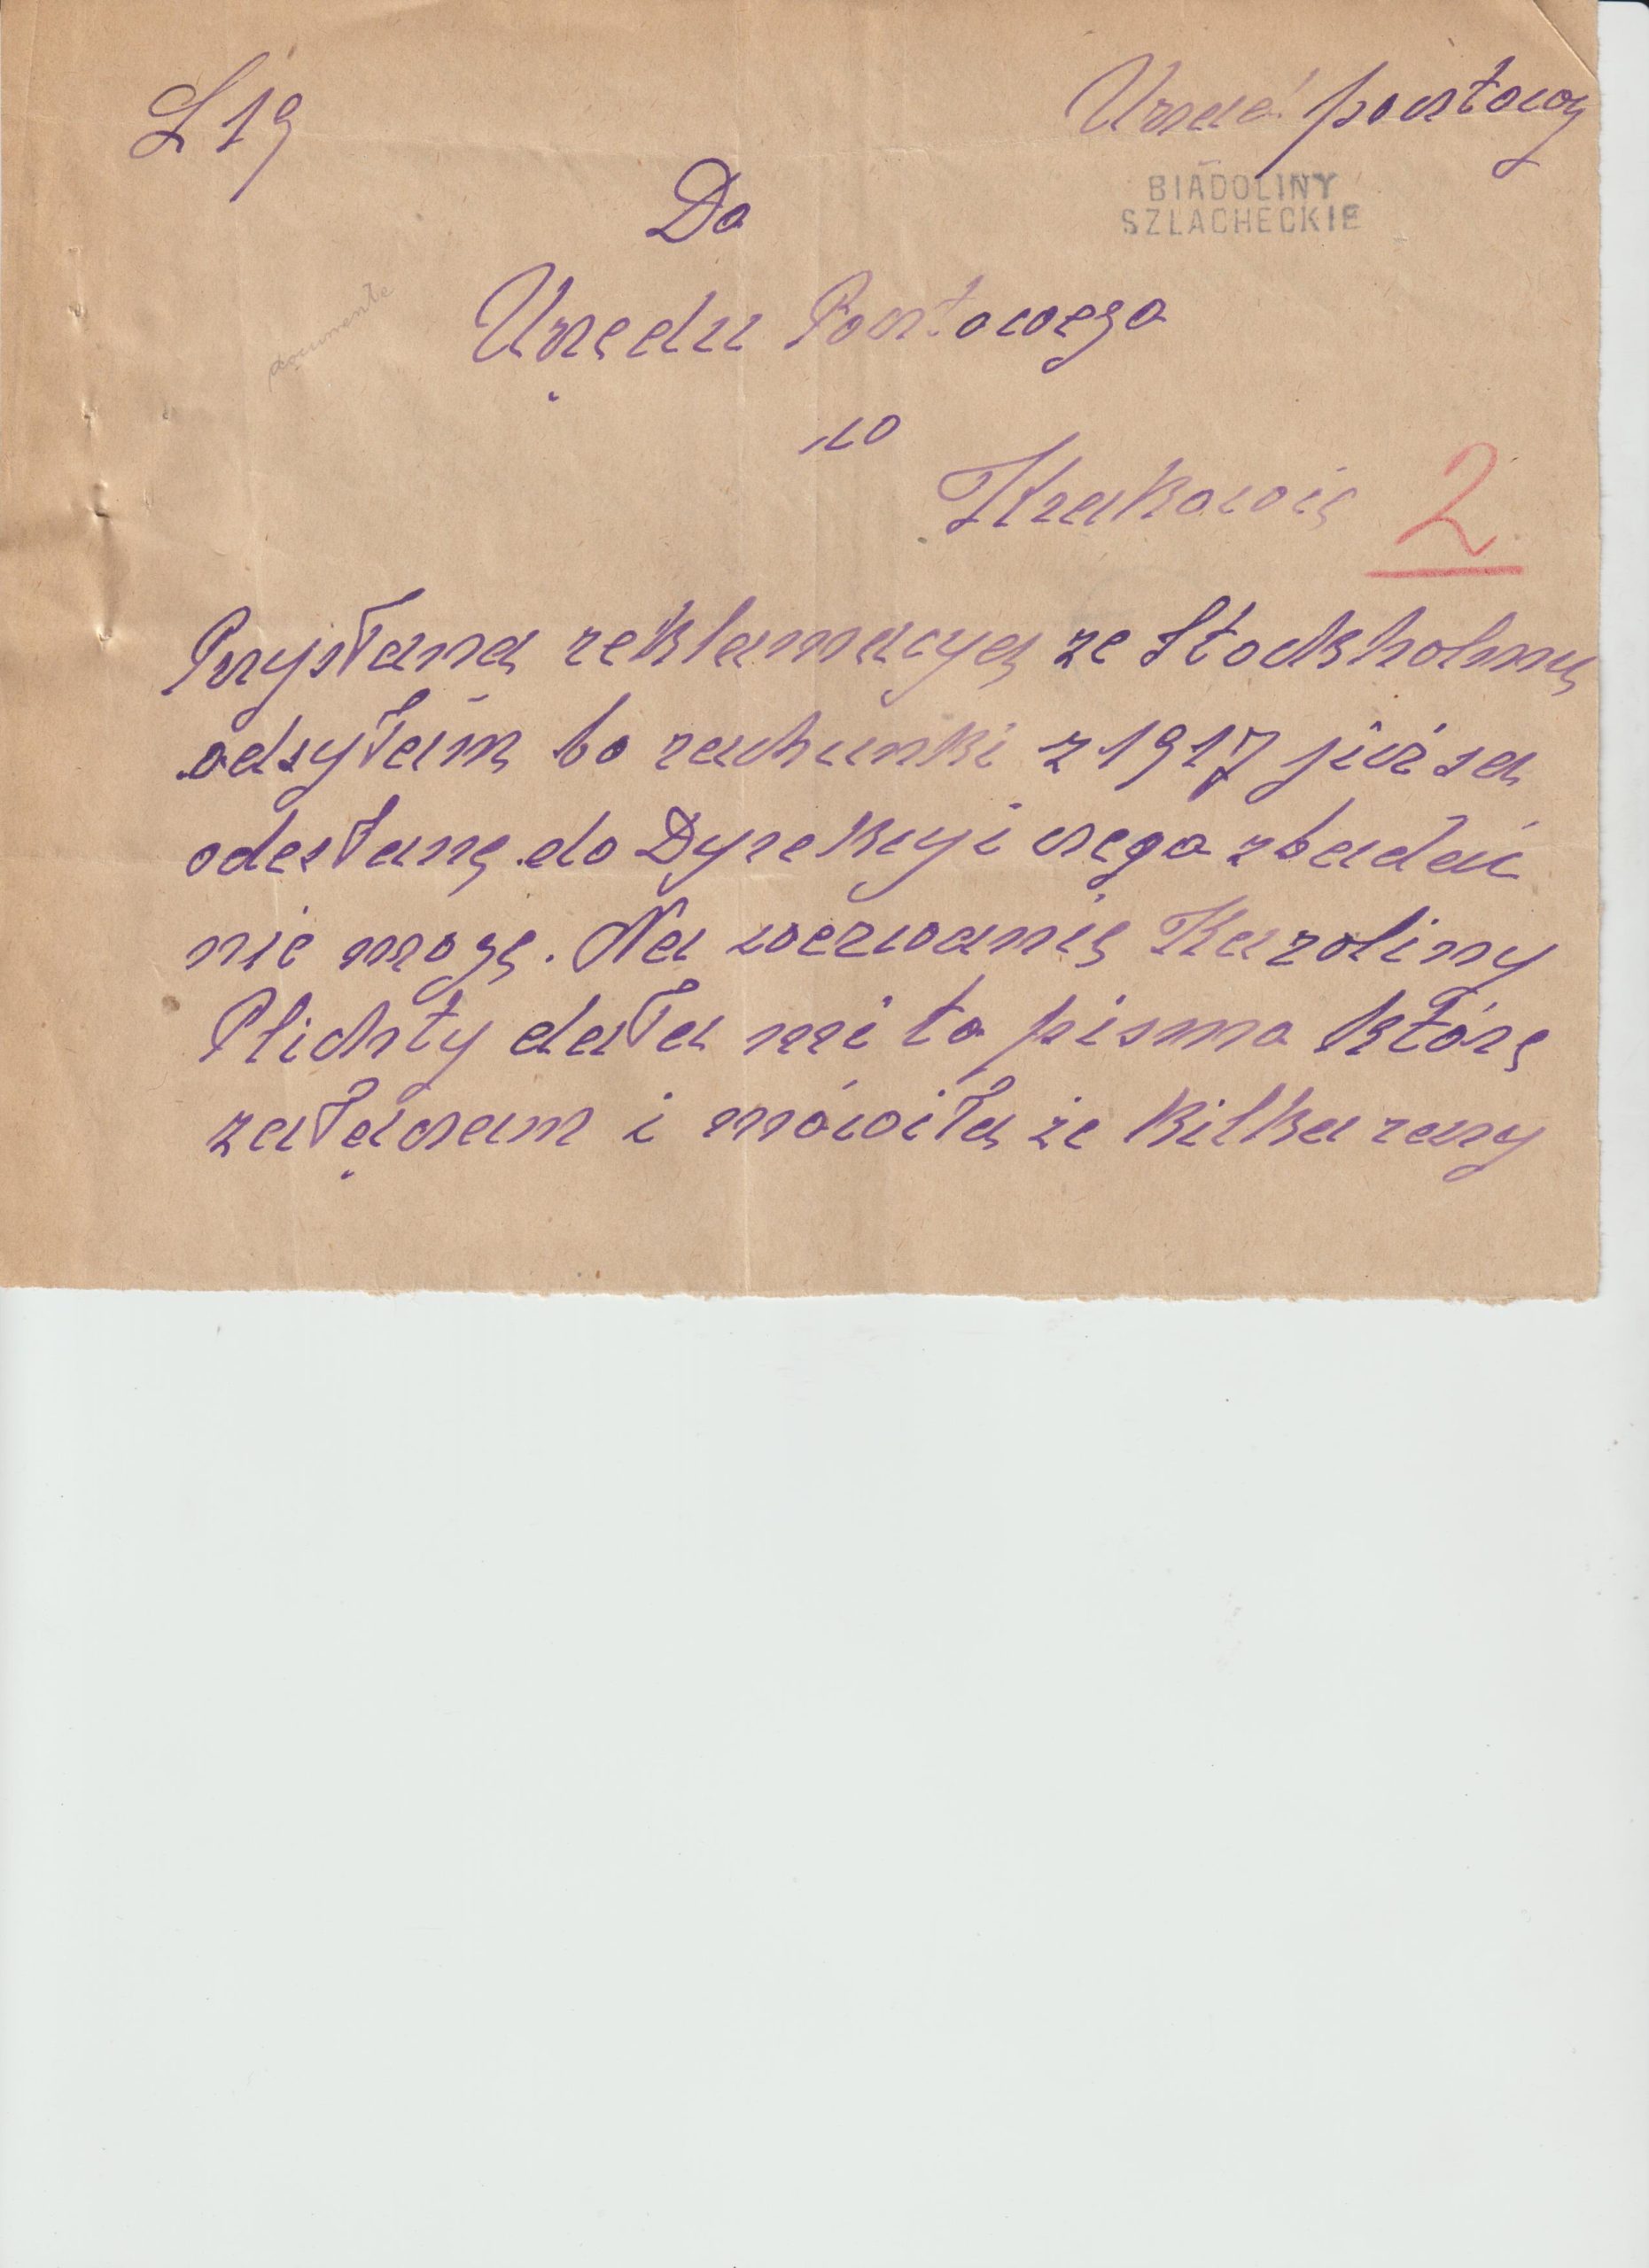 L 19
Urząd pocztowy
BIADOLINY
SZLACHECKIE
Do
Urzędu Pocztowego
w
Krakowie 2
Przysłaną reklamacyą ze Stockholmu
odsyłam bo rachunki z 1917 już są
odesłane do Dyrekcyi czego zbadać
nie mogę. Na wezwanie Karoliny
Plichty dała mi to pismo które
załączam i mówiła że kilka razy